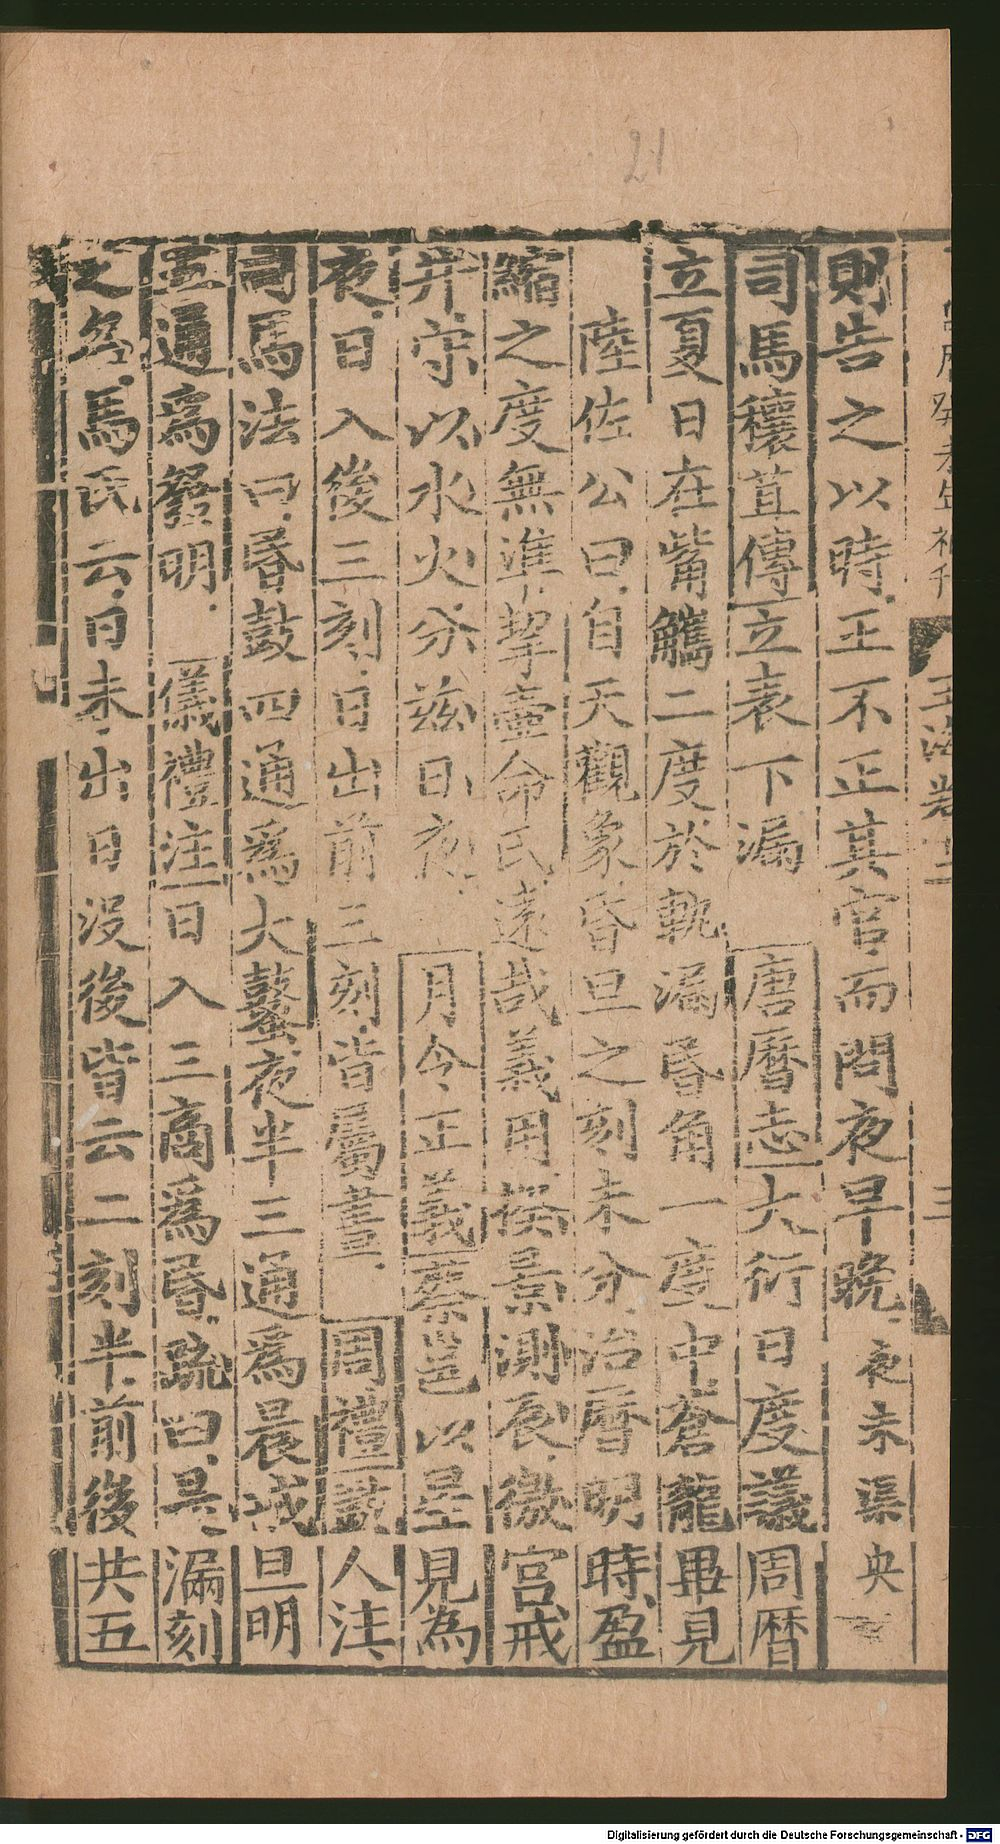 21
則告之以時.王不正其官.而問夜早晚.夜未渠央
司馬穰苴傳立表下漏 唐曆志大衍日度議周曆
立夏日在觜觿二度於軌漏昏角一度中蒼龍畢見
陸佐公曰.自天觀象昏旦之刻未分.治曆明時.盈
縮之度無準.挈壺命氏.遠哉義用.揆景測辰.徼宮戒
井.守以水火分茲日夜. 月令正義蔡邕以星見為
夜.日入後三刻.日出前三刻.皆屬晝. 周禮鼓人注.
司馬法曰.昏鼓四通爲大鼜夜半三通爲晨戒旦明
五通爲發明. 儀禮注日入三商爲昏.疏曰.是.漏刻
之名.馬氏云.日未.出日沒後皆云二刻半.前後共五
三
Digitalisierung gefördert durch die Deutsche Forschungsgemeinschaft - DFG